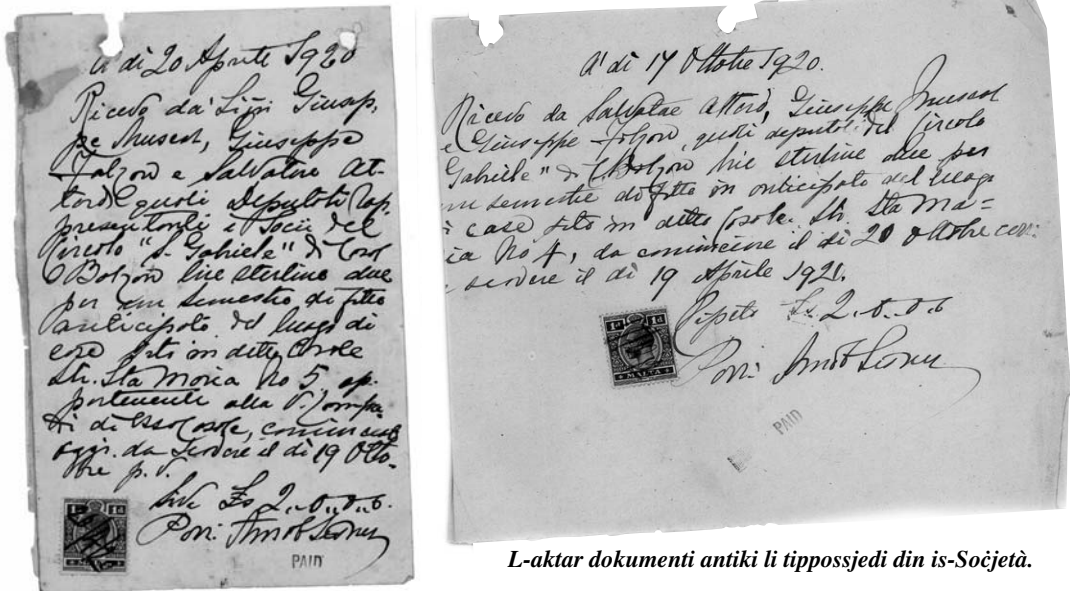 A' di 20 Aprile 1920
Ricevo da' Sigri Giusep,
pe Muscat, Giuseppe
Falzon e Salvatore At-
tard quali Deputati Rap,
presentanti e Socii del
Circolo "S. Gabriele" di Casal
Balzan lire sterline due
per un semestre di fitto
anticipato del luogo di
case sito in detto Casale
Str. Sta Maria No 5, ap-
partenente alla
di esso Casale, comin
oggi da scadere il di 19 Otto-
bre p. v.
£s 2,,0,,0,,6
1d 1d
PAID
A' di 17 Ottobre 1920.
Ricevo da Salvatore Attard, Giuseppe Muscat
e Giuseppe Falzon, quali deputati del Circolo
Gabriele" di C. Balzan lire sterline due per
un semestre di fitto in anticipato del luogo
i case sito in detto Casale Str. Sta Ma=
ia No 4, da cominciare il di 20 Ottobre corr:
scadere il di 19 Aprile 1921.
£s. 2,,0,,0,,6
1d 1d
MALTA
PAID
L-aktar dokumenti antiki li tippossjedi din is-Soċjetà.